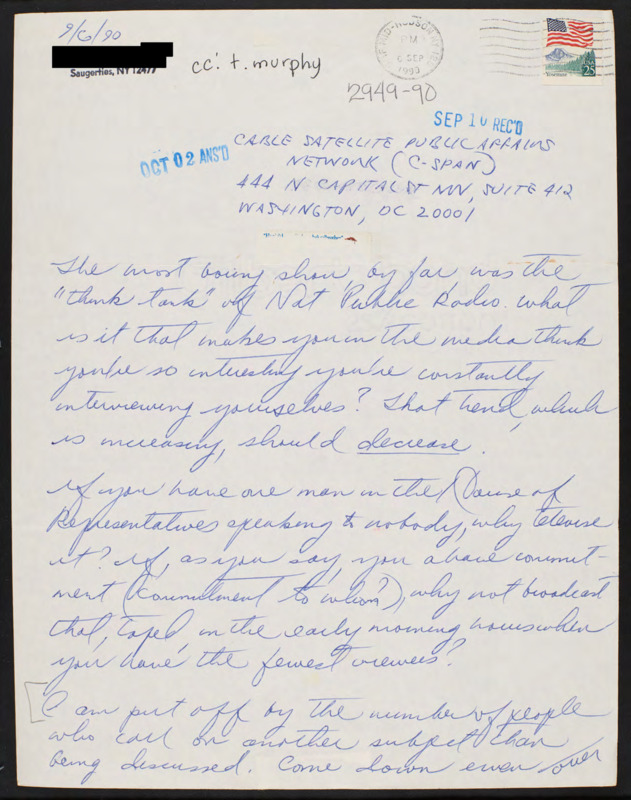 9/6/90
Saugerties, NY 12477
cc: t. murphy
MID-HUDSON
PM
6 SEP
1990
25
2949-90
SEP 10 REC'D
OCT 02 ANS'D
CABLE SATELLITE PUBLIC AFFAIRS
NETWORK (C-SPAN)
444 N CAPITAL ST NW, SUITE 412
WASHINGTON, DC 20001
The most boring show, by far, was the
"think tank" of Nat Public Radio. What
is it that makes you in the media think
you're so interesting you're constantly
interviewing yourselves? That trend, which
is increasing, should decrease.
If you have one man in the House of
Representatives speaking to nobody, why televise
it? If, as you say, you have a commit-
ment (commitment to whom?), why not broadcast
that, taped, in the early morning hours when
you have the fewest viewers?
I am put off by the number of people
who call on another subject than
being discussed. Come down even
over